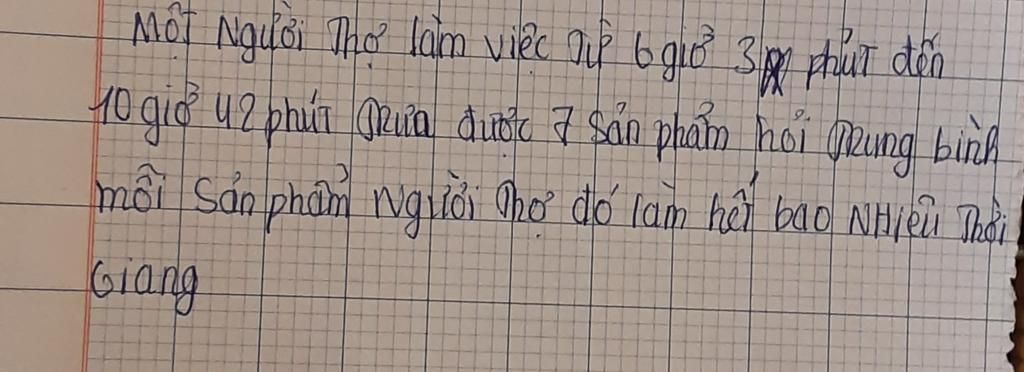 Một Người Thợ làm việc Từ 6 giờ 3 phút đến
10 giờ 42 phút Trưa được 7 sản phẩm hỏi Trung bình
mỗi sản phẩm Người Thợ đó làm hết bao NHiêu Thời
Giang